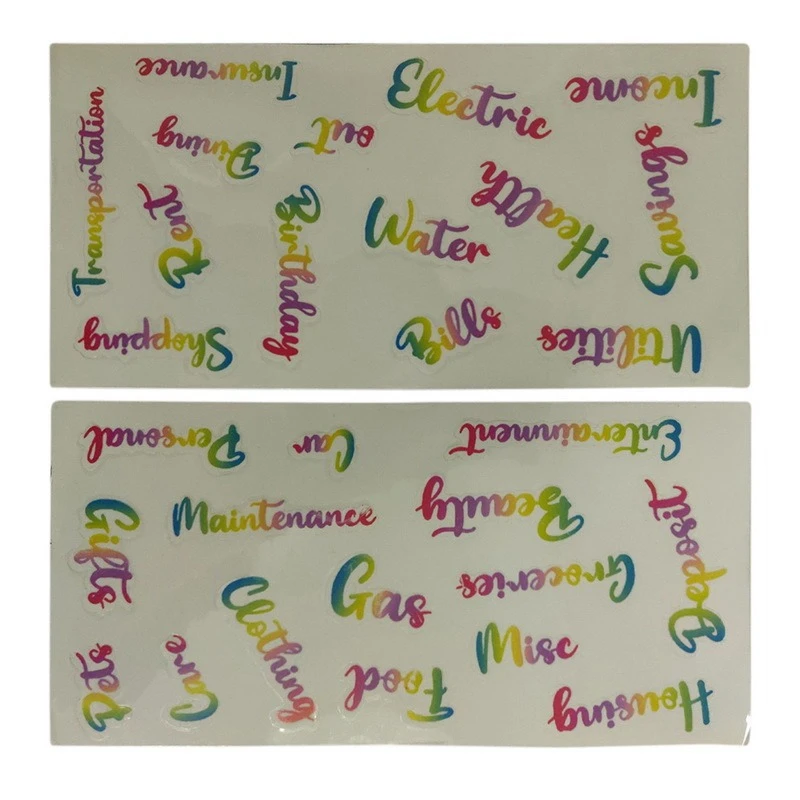 Insurance
Electric
Income
Transportation
Dining
out
Savings
Rent
Birthday
Water
Health
Shopping
Bills
Utilities
Personal
Car
Entertainment
Gifts
Maintenance
Beauty
Deposit
Clothing
Gas
Groceries
Pets
Care
Food
Misc
Housing